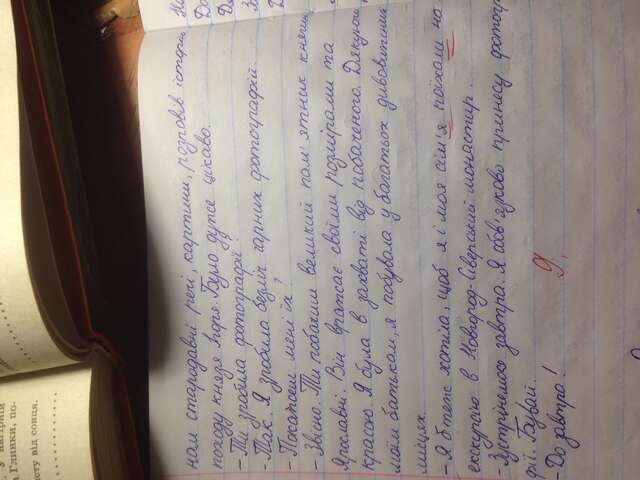 У нагірній
а Глинки, по-
исту від сонця.
нам стародавні речі, картини, розповів історію
походу князя Ігоря. Було дуже цікаво.
- Ти зробила фотографії?
- Так. Я зробила безліч гарних фотографій.
- Покажеш мені їх?
- Звісно. Ти побачиш великий пам'ятник княгині
Ярославні. Він вражає своїми розмірами та
красою. Я була в захваті від побаченого. Дякуючи
моїм батькам, я побувала у багатьох дивовижних
місцях.
- Я б теж хотіла, щоб я і моя сім'я поїхали на
екскурсію в Новгород-Сіверський монастир.
- Зустрінемось завтра. Я обов'язково принесу фотогр
фії. Бувай.
- До завтра!
9.